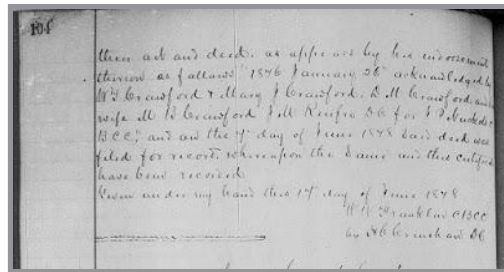 104
their act and deed. as appears by his endorsement
thereon as follows "1876 January 26th acknowledged by
W T Crawford & Mary J Crawford. D M Crawford and
wife M B Crawford J M Renfro DC for
BCC" and on the 7th day of June 1878 said deed was
filed for record. whereupon the same and this certificate
have been recorded
Given under my hand this 17th day of June 1878
Franklin CBCC
by DC